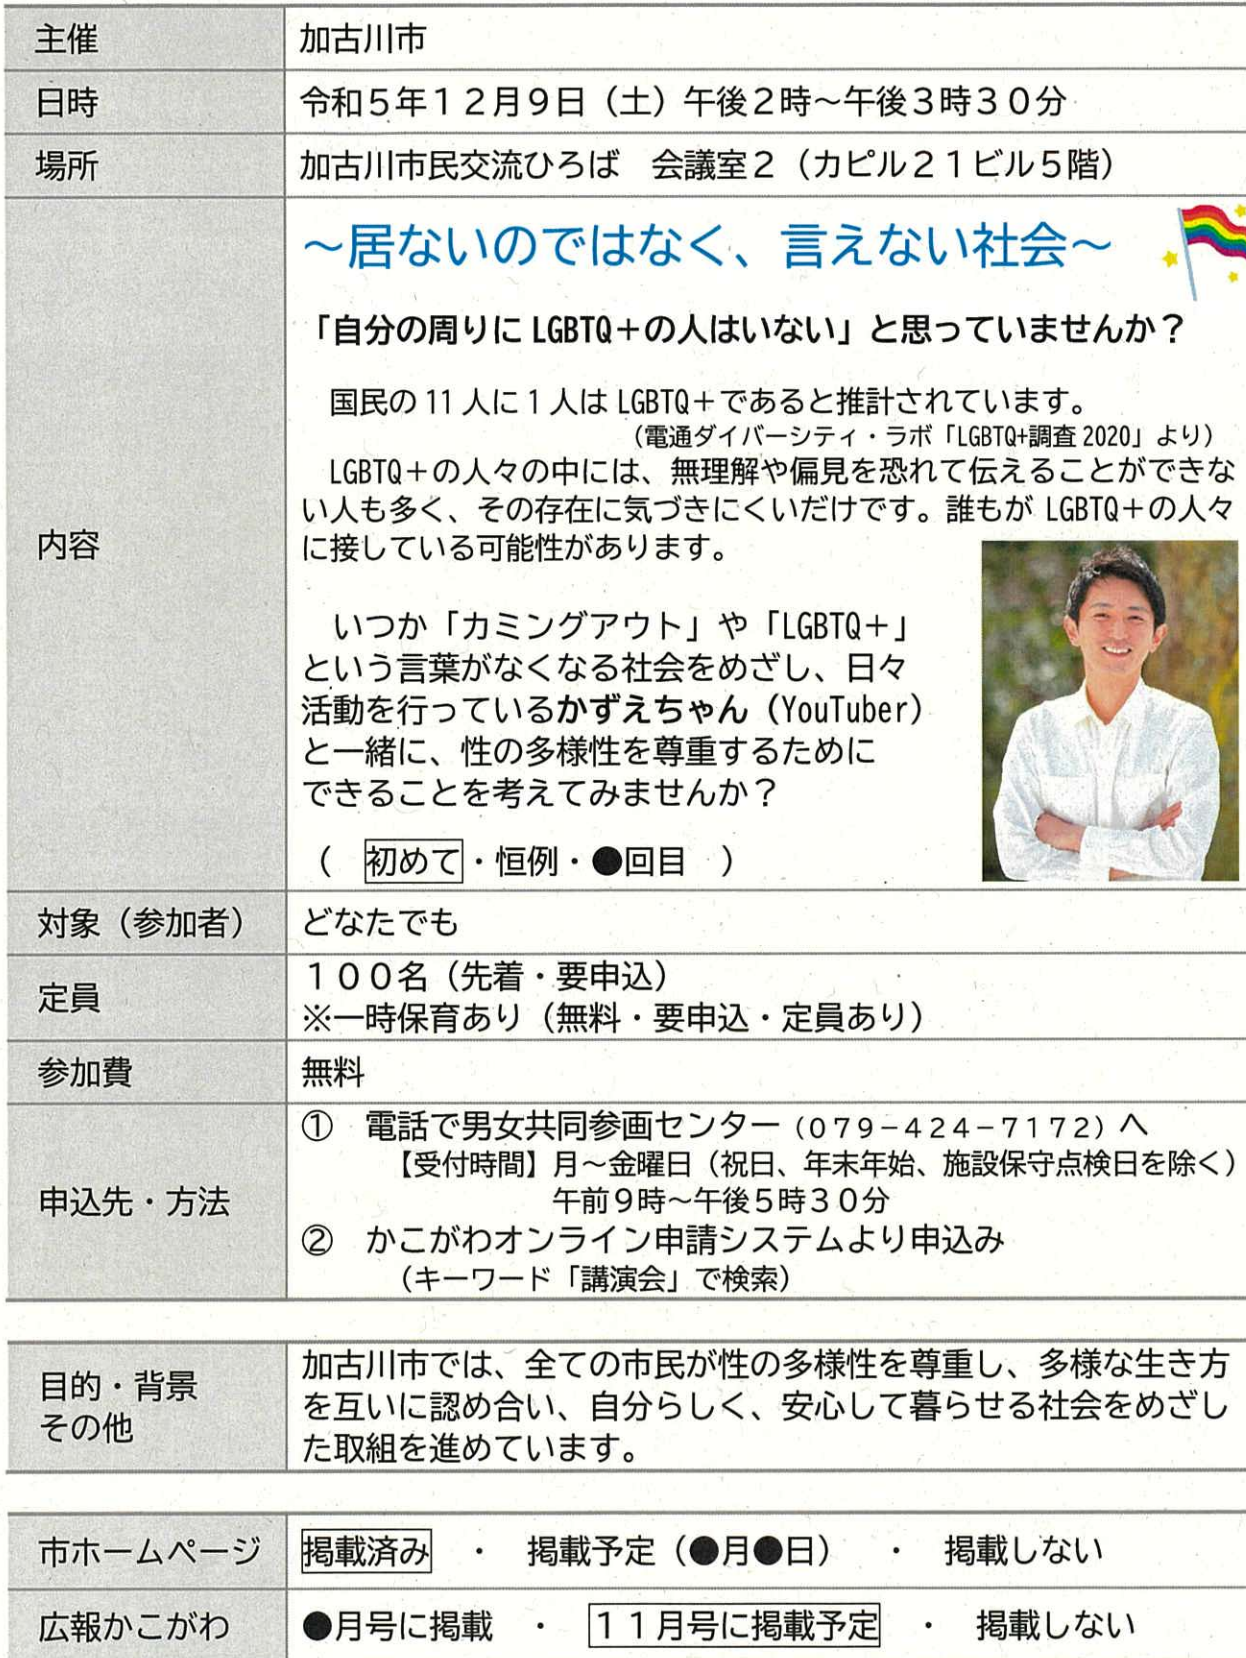 主催
加古川市
日時
令和5年12月9日（土）午後2時～午後3時30分
場所
加古川市民交流ひろば　会議室2（カピル21ビル5階）
内容
～居ないのではなく、言えない社会～
「自分の周りに LGBTQ＋の人はいない」と思っていませんか？
国民の 11 人に 1 人は LGBTQ＋であると推計されています。
（電通ダイバーシティ・ラボ「LGBTQ+調査 2020」より）
LGBTQ＋の人々の中には、無理解や偏見を恐れて伝えることができな
い人も多く、その存在に気づきにくいだけです。誰もが LGBTQ＋の人々
に接している可能性があります。
いつか「カミングアウト」や「LGBTQ＋」
という言葉がなくなる社会をめざし、日々
活動を行っているかずえちゃん（YouTuber）
と一緒に、性の多様性を尊重するために
できることを考えてみませんか？
（　初めて・恒例・●回目　）
対象（参加者）
どなたでも
定員
100名（先着・要申込）
※一時保育あり（無料・要申込・定員あり）
参加費
無料
申込先・方法
①　電話で男女共同参画センター（079－424－7172）へ
【受付時間】月～金曜日（祝日、年末年始、施設保守点検日を除く）
午前9時～午後5時30分
②　かこがわオンライン申請システムより申込み
（キーワード「講演会」で検索）
目的・背景
その他
加古川市では、全ての市民が性の多様性を尊重し、多様な生き方
を互いに認め合い、自分らしく、安心して暮らせる社会をめざし
た取組を進めています。
市ホームページ
掲載済み　・　掲載予定（●月●日）　・　掲載しない
広報かこがわ
●月号に掲載　・　11月号に掲載予定　・　掲載しない